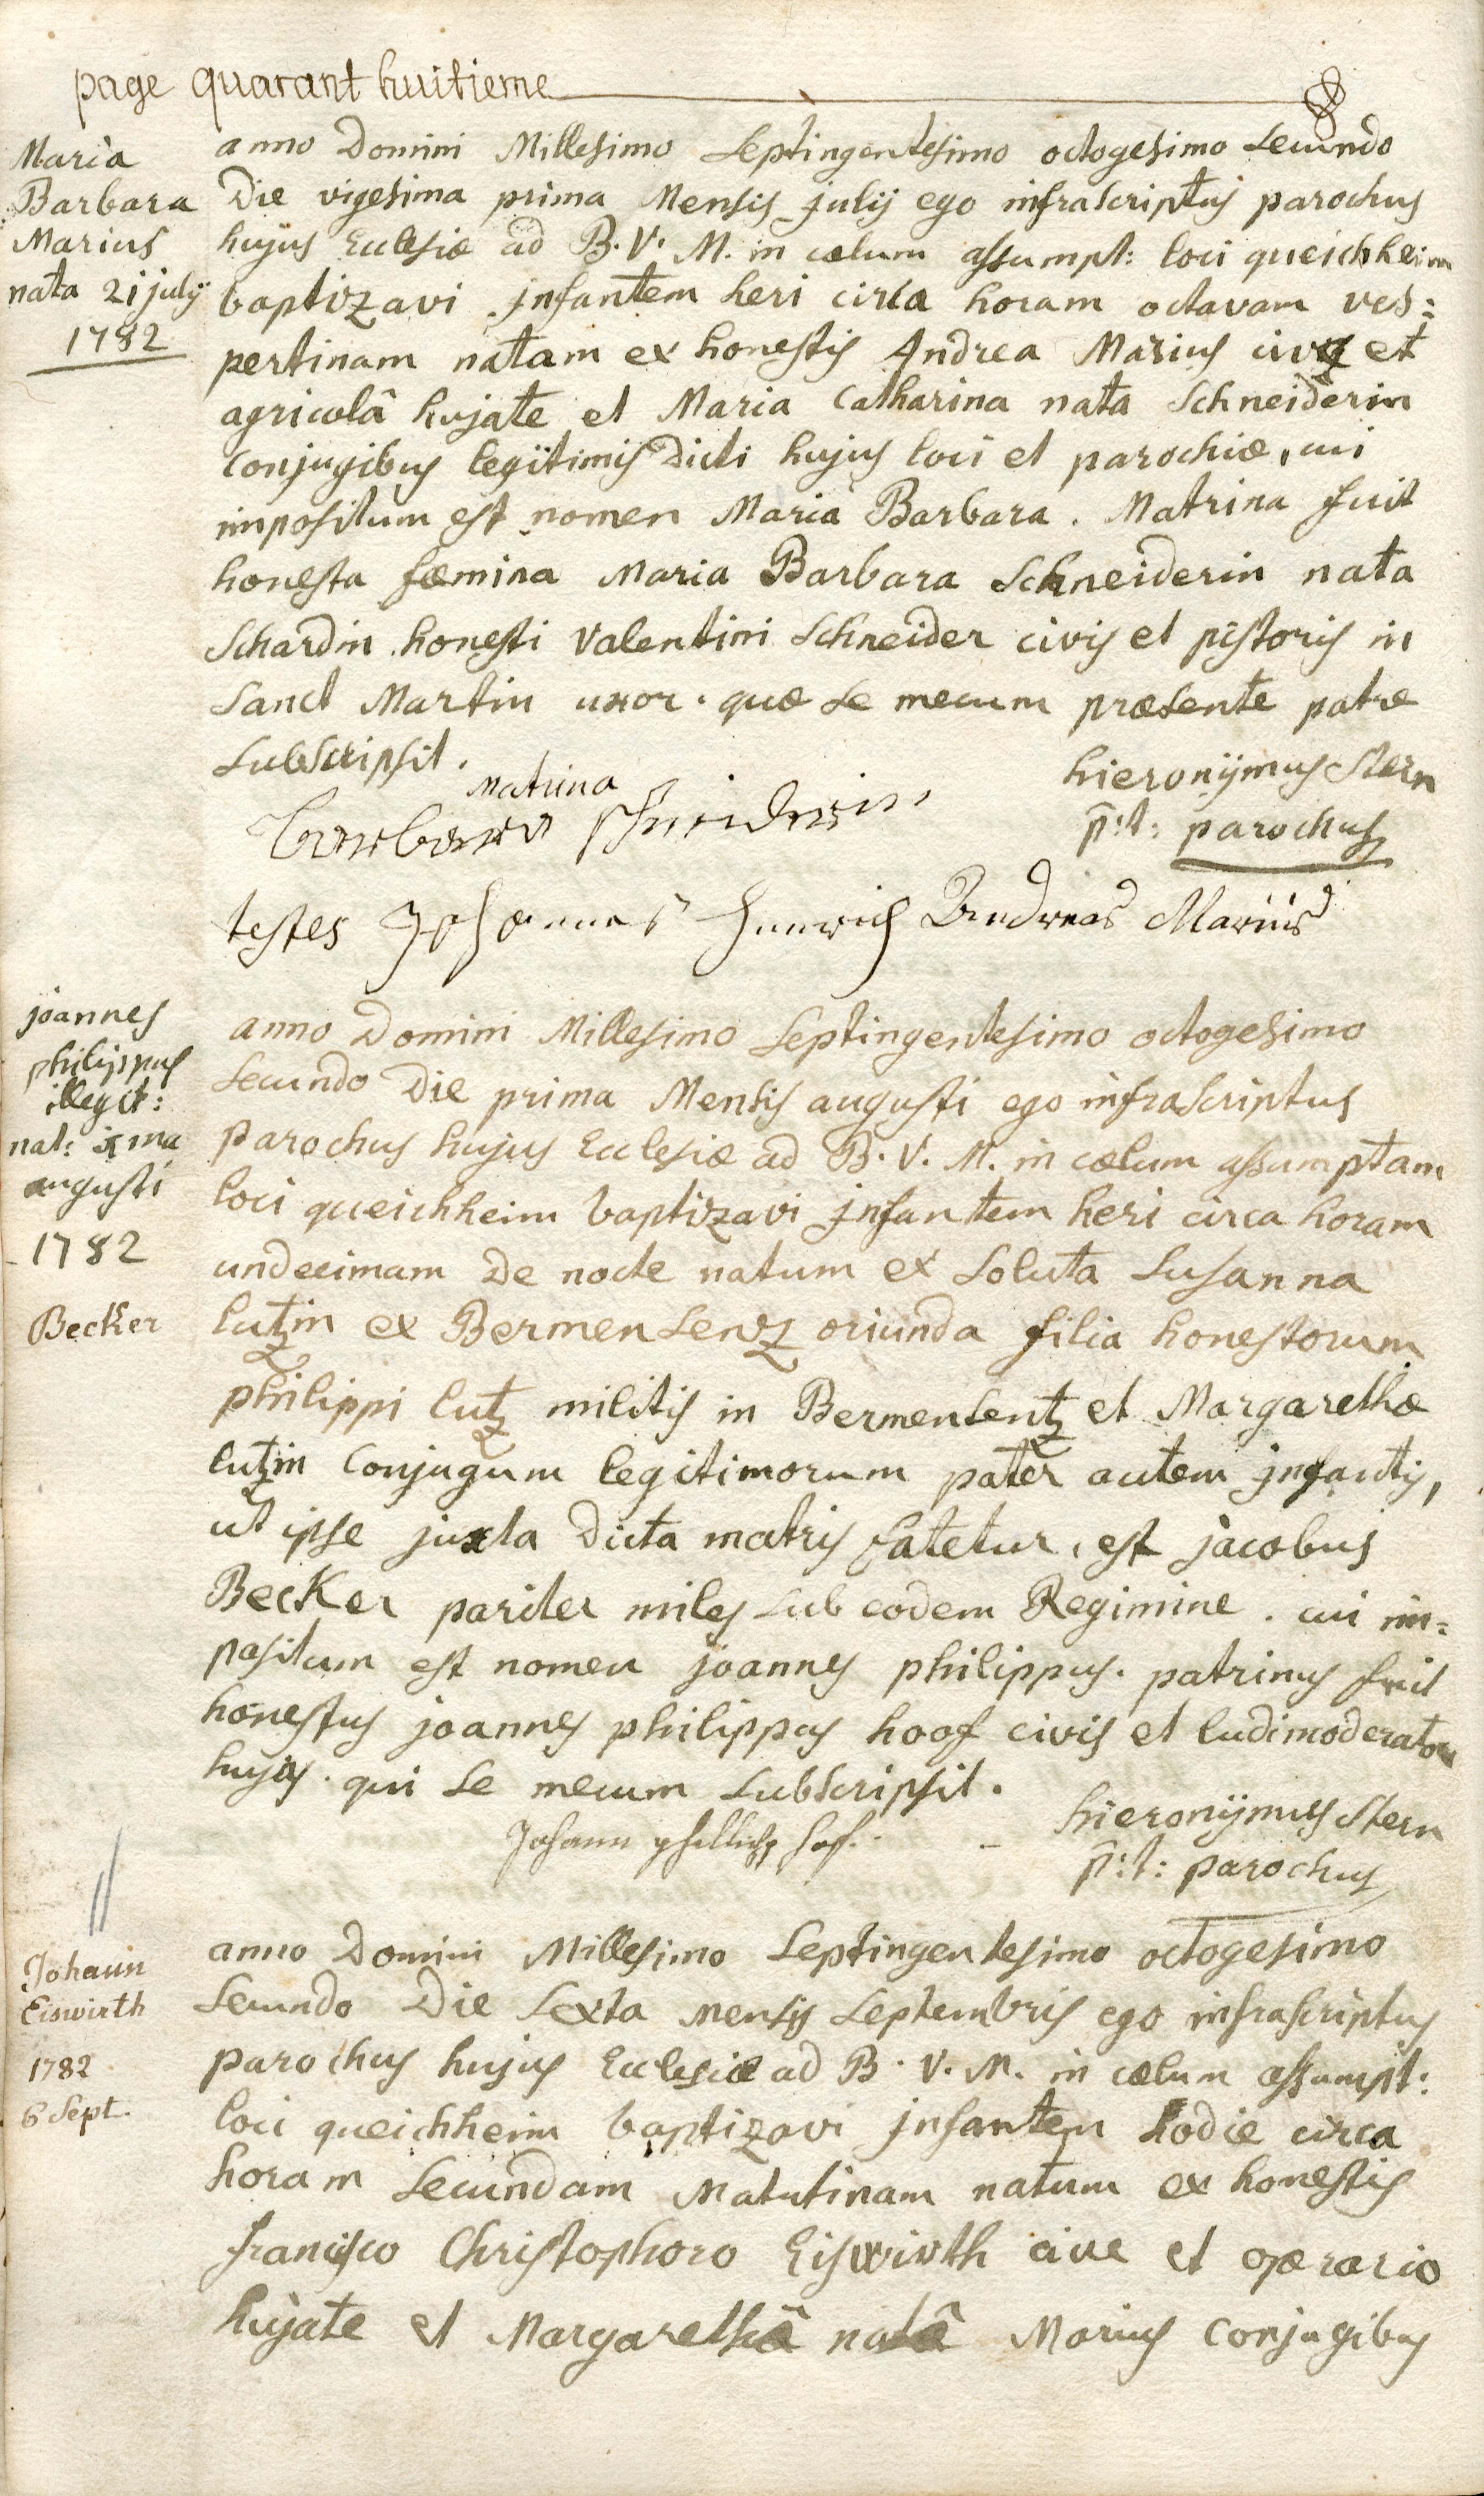 page quarant huitieme
Maria
Barbara
Marius
nata 21 july
1782
anno Domini Millesimo Septingentesimo octogesimo secundo
Die vigesima prima Mensis julij ego infrascriptus parochus
hujus Ecclesiæ ad B. V. M. in cælum assumpt: loci queichheim
baptizavi jnfantem heri circa horam octavam ves=
pertinam natam ex honestis Andrea Marius cive et
agricolâ hujate et Maria Catharina nata Schneiderin
conjugibus legitimis dicti hujus loci et parochiæ, cui
impositum est nomen Maria Barbara. Matrina fuit
honesta fœmina Maria Barbara Schneiderin nata
Schardin honesti Valentini Schneider civis et pistoris in
Sanct Martin uxor. quæ se mecum præsente patre
subscripsit.
Matrina
barbara schneiderin
hieronijmus Stern
p:t: parochus
testes Johannes Andreas Marius
joannes
philippus
illegit:
nat: 1ma
augusti
1782
Becker
anno Domini Millesimo Septingentesimo octogesimo
secundo Die prima Mensis augusti ego infrascriptus
parochus hujus Ecclesiæ ad B. V. M. in cælum assumptam
loci queichheim baptizavi jnfantem heri circa horam
undecimam de nocte natum ex soluta Susanna
lutzin ex Bermensenz oriunda filia honestorum
philippi lutz militis in Bermensentz et Margarethæ
lutzin conjugum legitimorum pater autem jnfantis,
ut ipse juxta dicta matris fatetur, est jacobus
Becker pariter miles sub eodem Regimine. cui im=
positum est nomen joannes philippus. patrinus fuit
honestus joannes philippus hoof civis et ludimoderator
hujas. qui se mecum subscripsit.
Johann phillips hof.
hieronijmus Stern
p:t: parochus
Johann
Eiswirth
1782
6 Sept.
anno Domini Millesimo Septingentesimo octogesimo
secundo Die sexta mensis septembris ego infrascriptus
parochus hujus Ecclesiæ ad B. V. M. in cælum assumpt:
loci queichheim baptizavi jnfantem hodie circa
horam secundam matutinam natum ex honestis
francisco Christophoro Eiswirth cive et operario
hujate et Margarethâ natâ Marius conjugibus